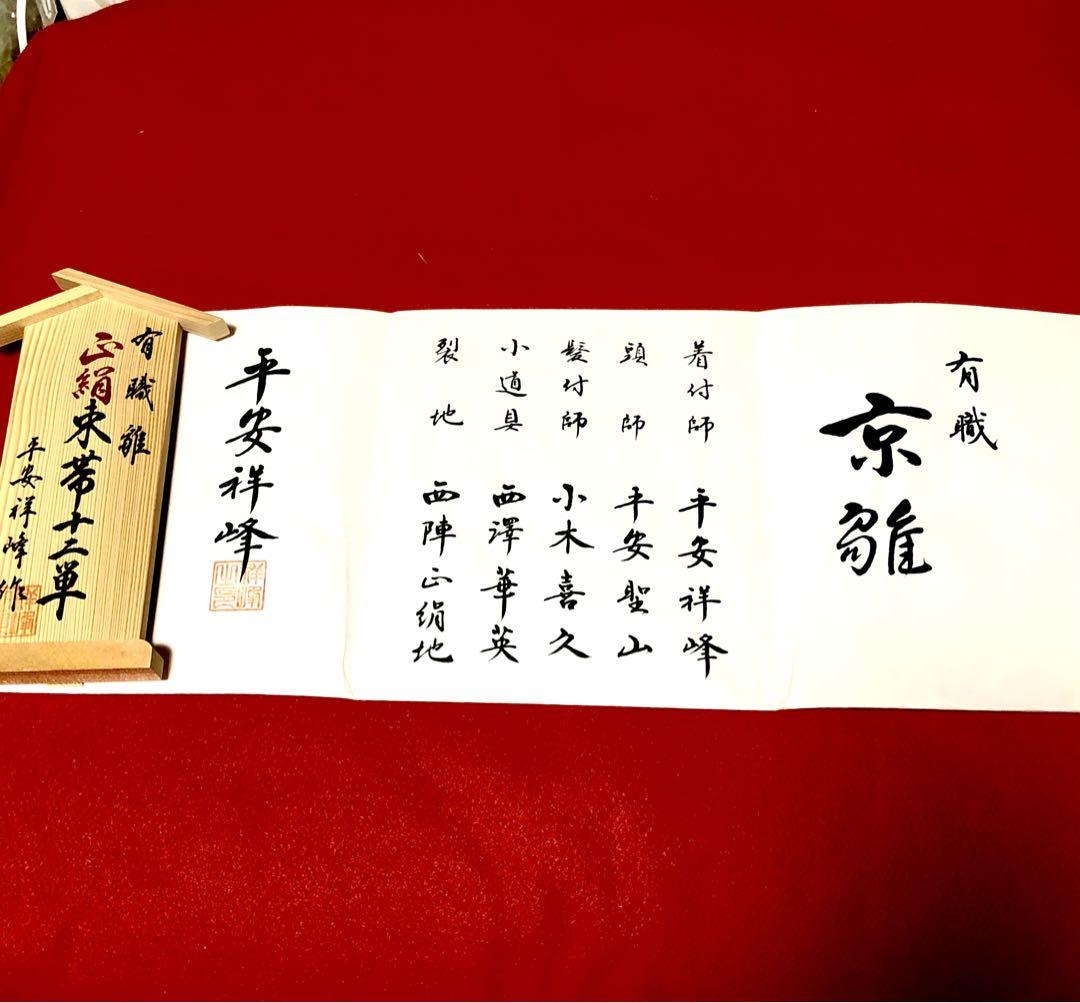 有職
京雛
着付師 平安祥峰
頭師 平安聖山
髪付師 小木喜久
小道具 西澤華英
裂地 西陣正絹地
平安祥峰
有職雛
正絹束帯十二単
平安祥峰作